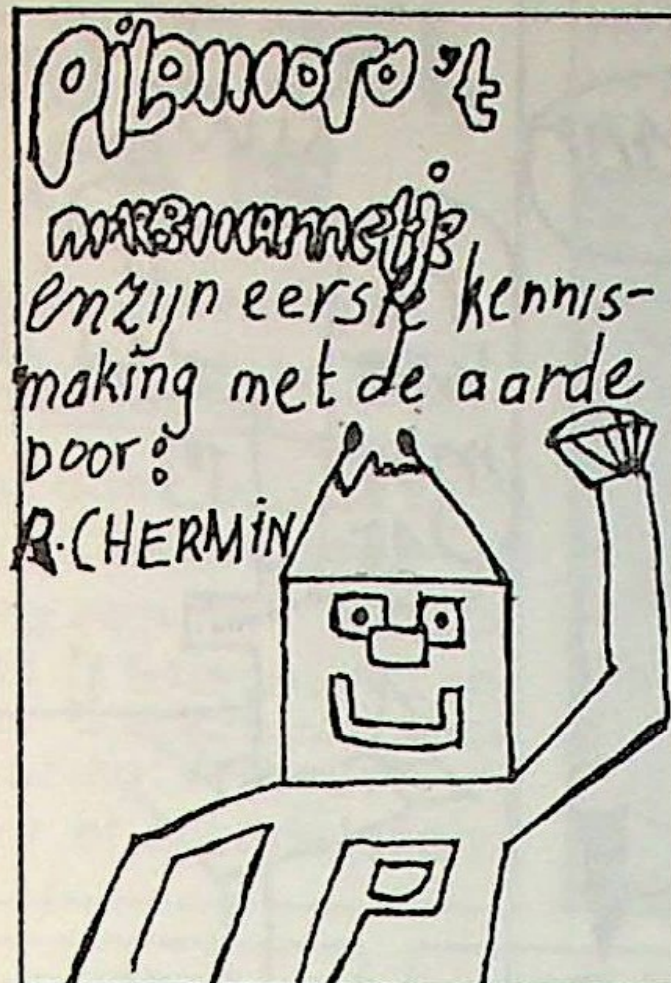 PiLOMORO 't
marsmannetje
en zijn eerste kennis-
making met de aarde
DOOR:
R.CHERMiN
P